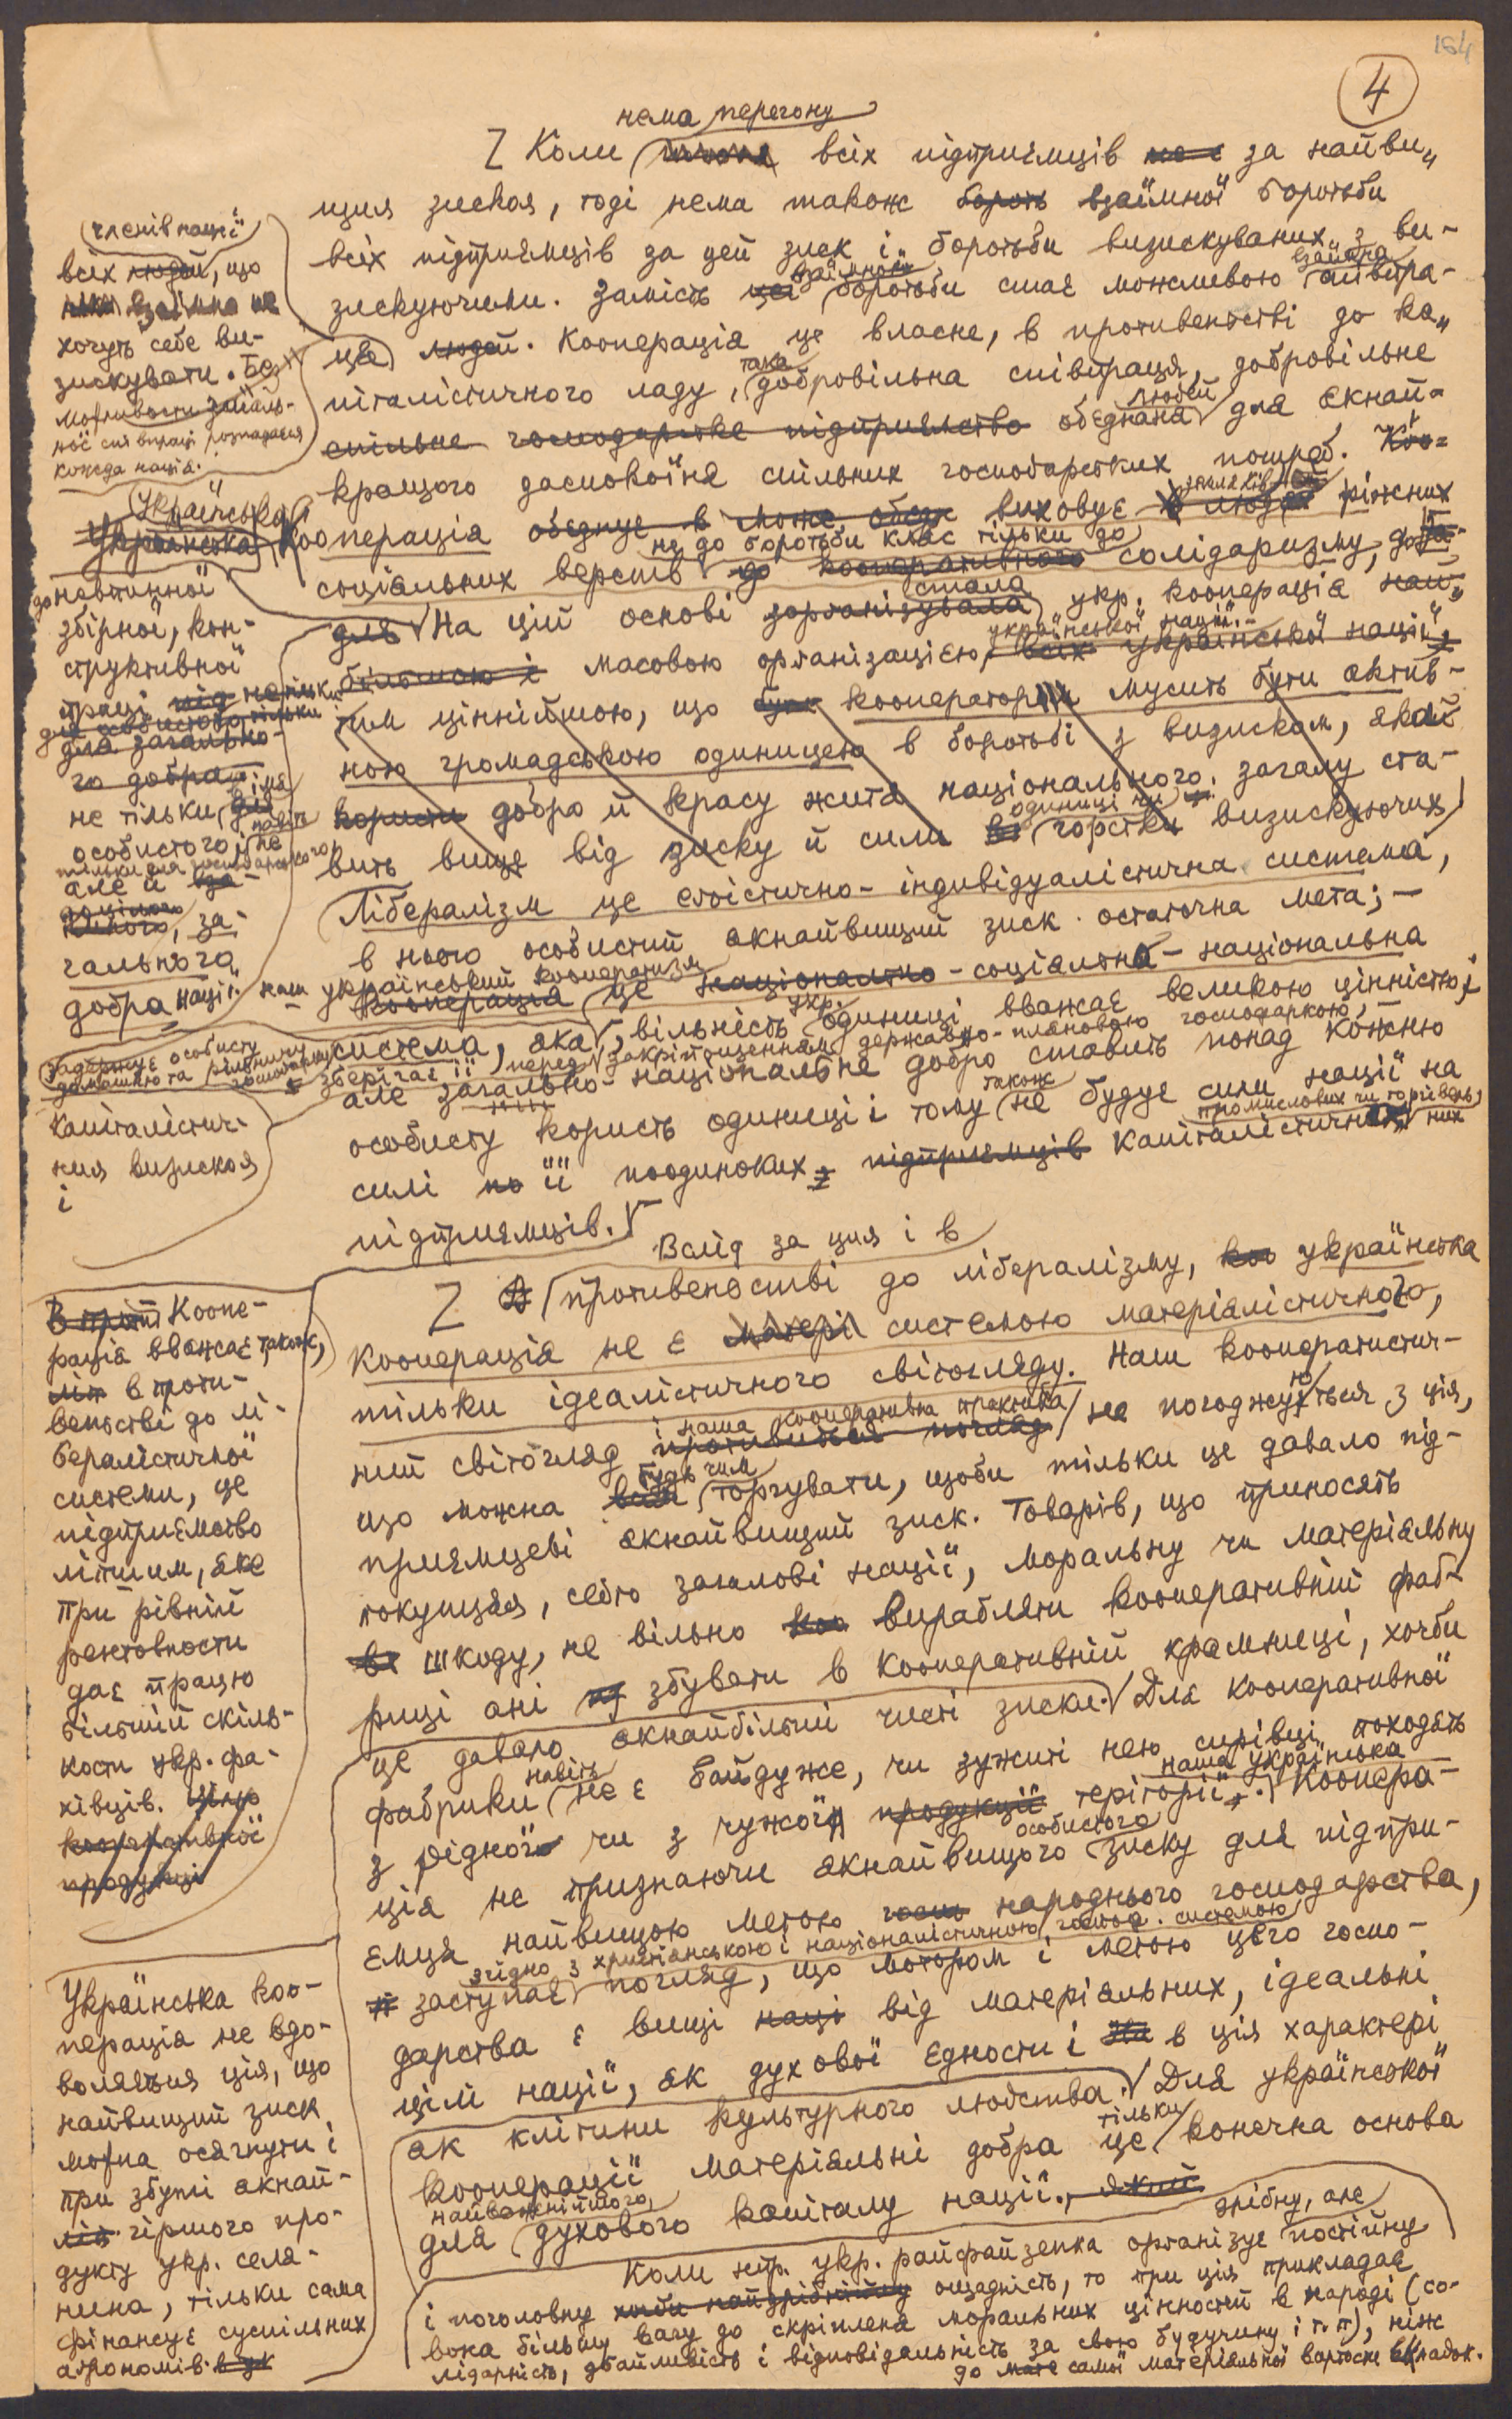 164
4
нема перегону
Коли всіх підприємців за найви-
щим зиском, тоді нема також взаїмної боротьби
всіх підприємців за цей зиск і боротьби визискуваних з ви-
зискуючими. Замість взаїмної боротьби стає можливою взаїмна співпра-
ця людей. Кооперація це власне, в противенстві до ка-
піталістичного ладу, така добровільна співпраця, добровільне
спільне господарське підприємство обєднання людей для якнай-
кращого заспокоїня спільних господарських потреб. Коо-
Кооперація обєднує в може обєдн виховує людей ріжних
не до боротьби клас тільки до
соціяльних верств до кооперативного солідаризму,
для На цій основі зорганізувала стала укр. кооперація най-
української нації
більшою і масовою організацією всіх української нації,
тим ціннійшою, що кооператори мусить бути актив-
ною громадською одиницею в боротьбі з визиском, який
користи добро й красу життя національного загалу ста-
одиниці чи
вить вище від зиску й сили горстки визискуючих
Лібералізм це егоїстично-індивідуалістична система,
в нього особистий якнайвищий зиск остаточна мета; —
наш український кооператизм
кооперація це національно-соціяльна-національна
система, яка вільність укр. одиниці вважає великою цінністю і
зберігає її перед закріпощенням державно-пляновою господаркою,
але загально-національне добро ставить понад кожню
особисту користь одиниці і тому також не будує сили нації на
силі її поодиноких підприємців капіталістичних промислових чи торговель-
них
підприємців.
Вслід за цим і в
противенстві до лібералізму, українська
кооперація не є матері системою матеріялістичного,
тільки ідеалістичного світогляду. Наш кооператистич-
ний світогляд і наша кооперативна практика не погоджуються з цим,
що можна будь чим торгувати, щоби тільки це давало під-
приємцеві якнайвищий зиск. Товарів, що приносять
покупцям, себто загалові нації, моральну чи матеріяльну
шкоду, не вільно виробляти кооперативній фаб-
риці ані збувати в кооперативній крамниці, хочби
це давало якнайбільші чисті зиски. Для кооперативної
фабрики навіть не є байдуже, чи зужиті нею сирівці походять
з рідної чи з чужої продукції теріторії. Наша українська Коопера-
ція не признаючи якнайвищого особистого зиску для підпри-
ємця найвищою метою народнього господарства,
згідно з христіянською і націоналістичною господ. системою
заступає погляд, що мотором і метою цього госпо-
дарства є вищі від матеріяльних, ідеальні
ціли нації, як духової єдности і в цім характері
як клітини культурного людства. Для української
кооперації матеріяльні добра це тільки конечна основа
для найважнійшого духового капіталу нації.
Коли нпр. укр. райфайзенка організує дрібну, але постійну
і поголовну хочби найдрібнійшу ощадність, то при цім прикладає
вона більшу вагу до скріплення моральних цінностей в народі (со-
лідарність, дбайливість і відповідальність за свою будучину і т. п), ніж
до самої матеріяльної вартости вкладок.
членів нації
всіх людей, що
взаїмно не
хочуть себе ви-
зискувати. Без
можливости
ної співпраці розпадаєся
кожда нація.
Українська
Українська
до невпинної
збірної, кон-
структивної
праці не тільки
для загально-
го добра
не тільки для
особистого,
тільки для господарського,
але й
цілого, за-
гального
добра нації.
капіталістич-
ним визиском
і
В прот Коопе-
рація вважає також,
в проти-
венстві до лі-
бералістичної
системи, це
підприємство
ліпшим, яке
при рівній
рентовности
дає працю
більшій скіль-
кости укр. фа-
хівців.
кооперативної
продукції
Українська коо-
перація не вдо-
воляється цім, що
найвищий зиск
можна осягнути і
при збуті якнай-
гіршого про-
дукту укр. селя-
нина, тільки сама
фінансує суспільних
агрономів.